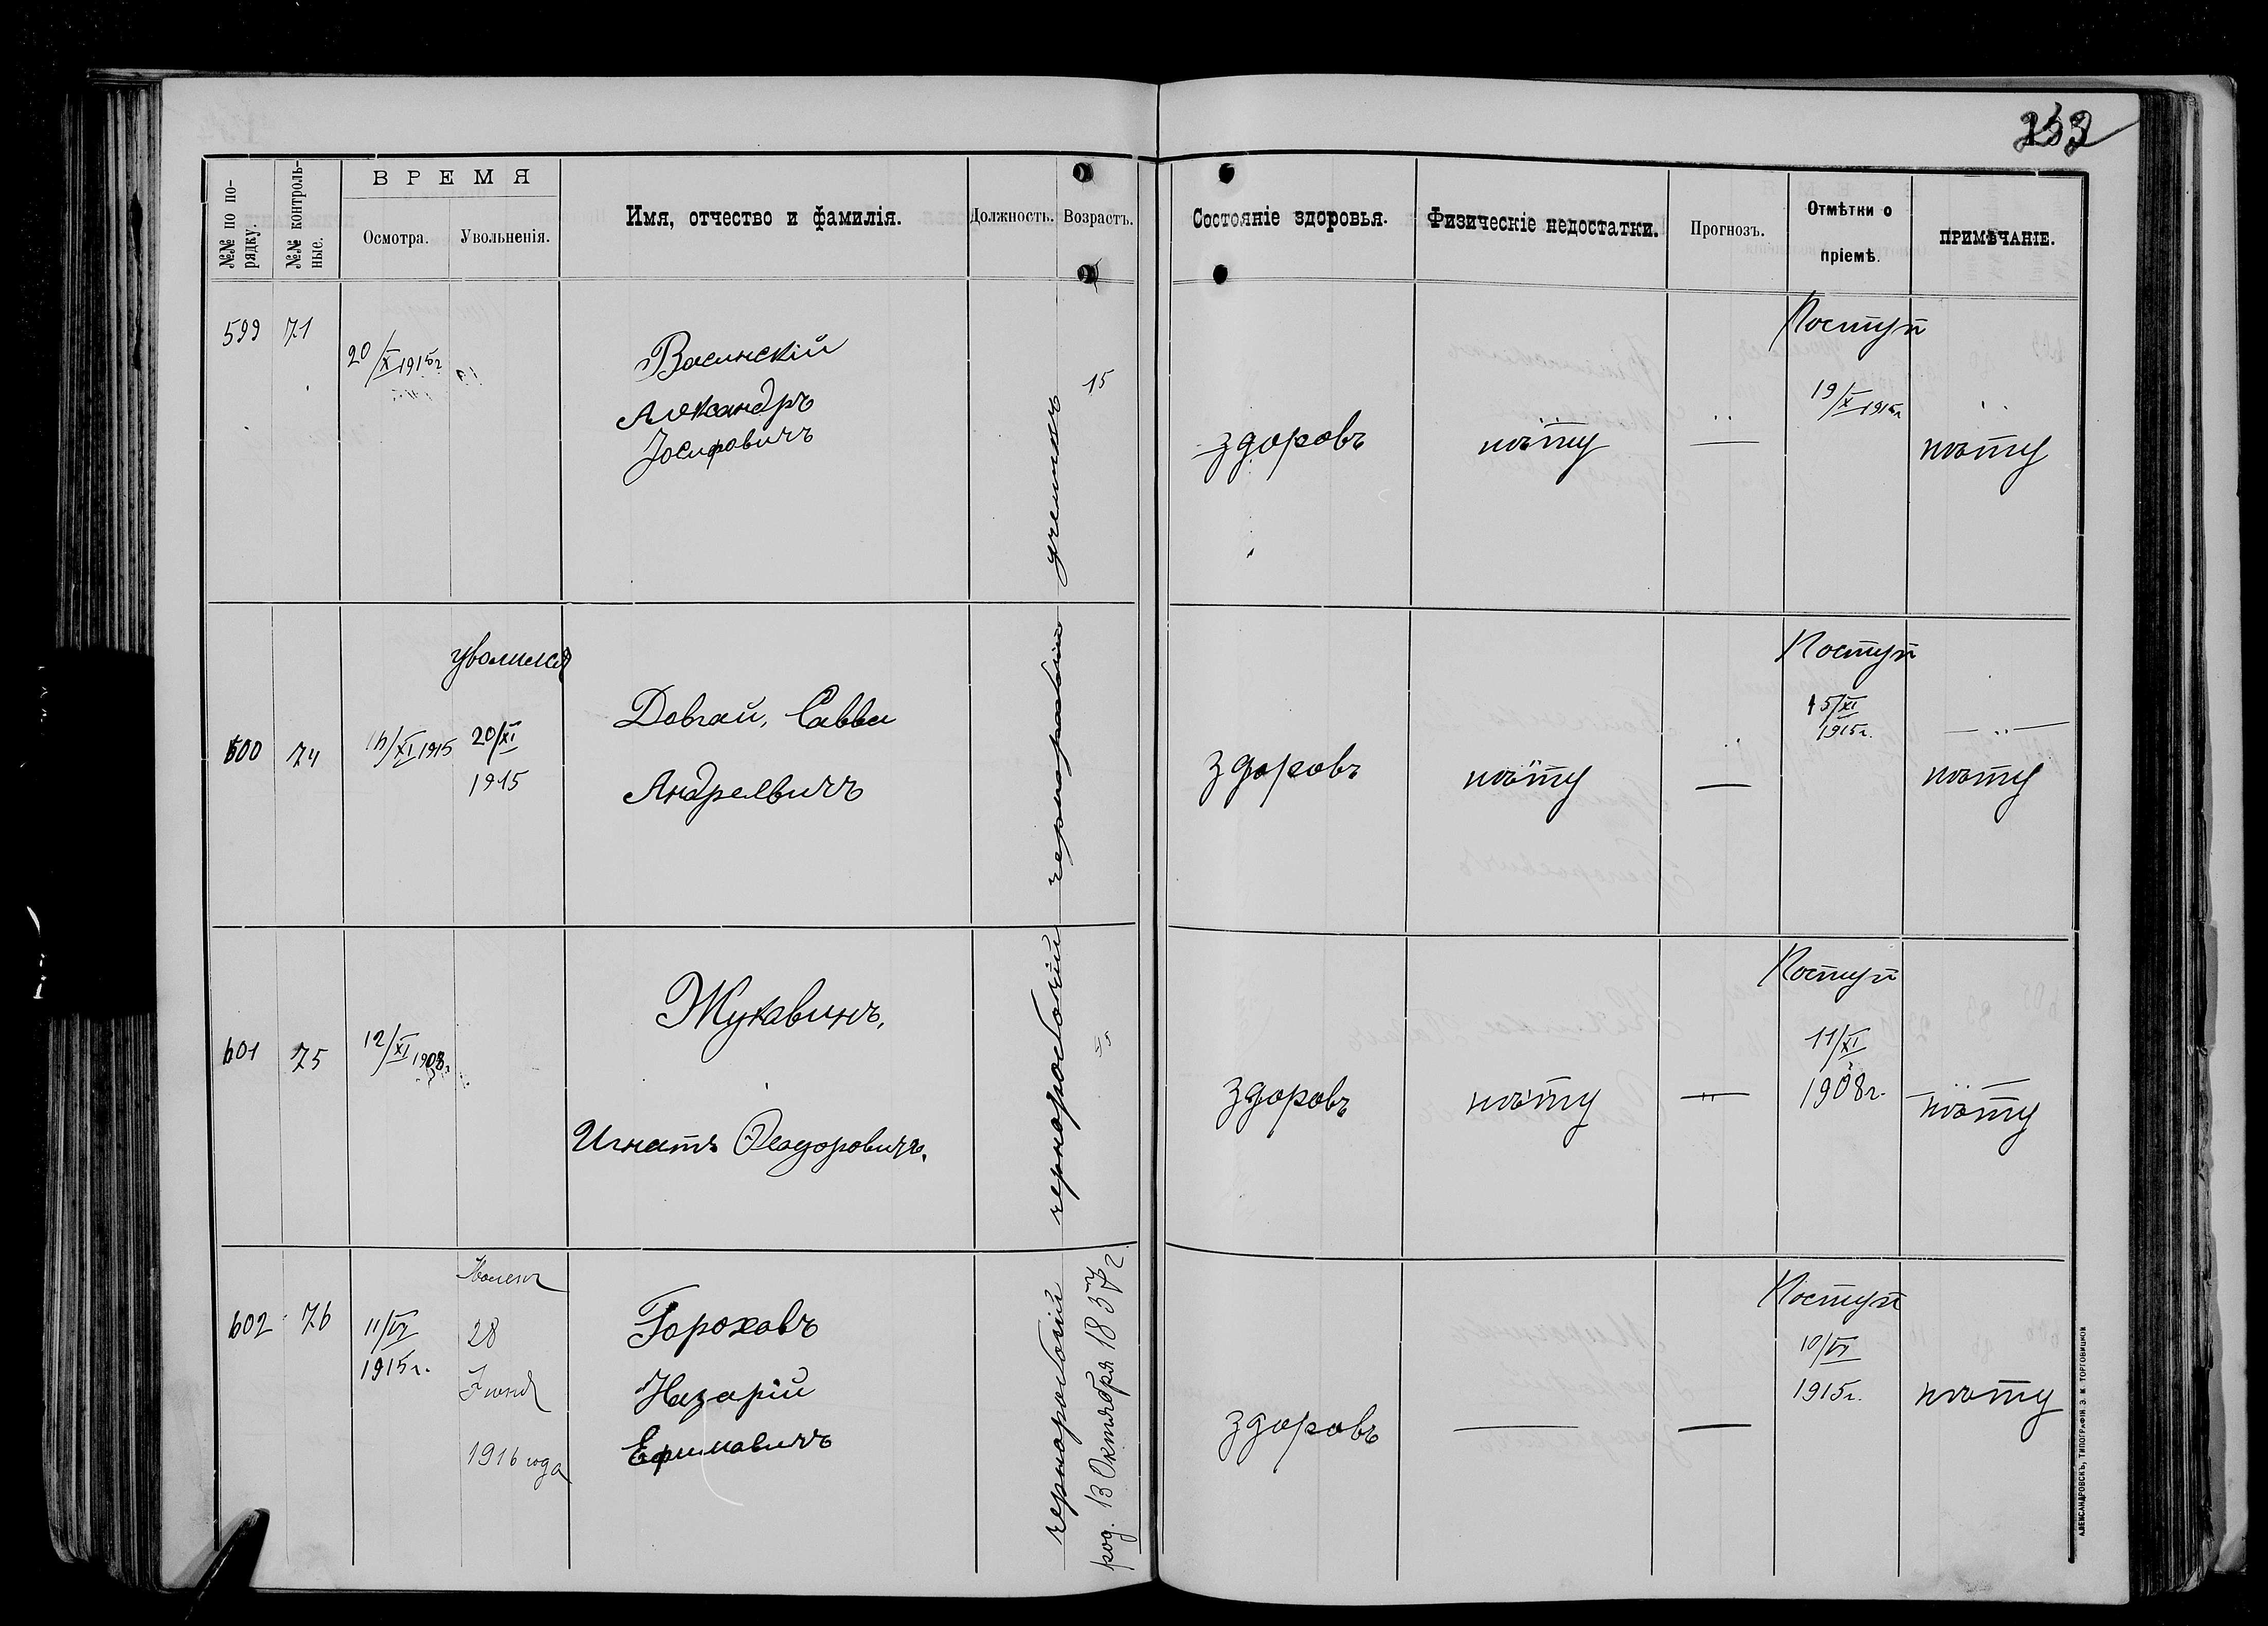 232
№№ по по-
рядку.
№№ контроль-
ные.
ВРЕМЯ
Осмотра.
Увольненія.
Имя, отчество и фамилія.
Должность.
Возрастъ.
Состояніе здоровья.
Физическіе недостатки.
Прогнозъ.
Отмѣтки о
пріемѣ.
ПРИМѢЧАНІЕ.
599
71
20/X 1915г
Васинскій
Александръ
Іосифовичъ
ученикъ
15
здоровъ
нѣту
—
Поступ
19/X 1915г
нѣту
600
74
16/XI 1915
уволился
20/XI
1915
Довгай, Савва
Андреевичъ
чернорабочій
здоровъ
нѣту
—
Поступ
15/XI
1915г.
нѣту
601
75
12/XI 1908г
Жукавинъ,
Игнатъ Феодоровичъ.
чернорабочій
здоровъ
нѣту
—
Поступ
11/XI
1908г.
нѣту
602
76
11/VI
1915г.
Уволен
28
Іюня
1916 года
Гороховъ
Назарій
Ефимовичъ
чернорабочій
род. 13 Октября 1857 г
здоровъ
—
—
Поступ
10/VI
1915г.
нѣту
АЛЕКСАНДРОВСКЪ, ТИПОГРАФІЯ Э. М. ТОРГОВИЦКОЙ